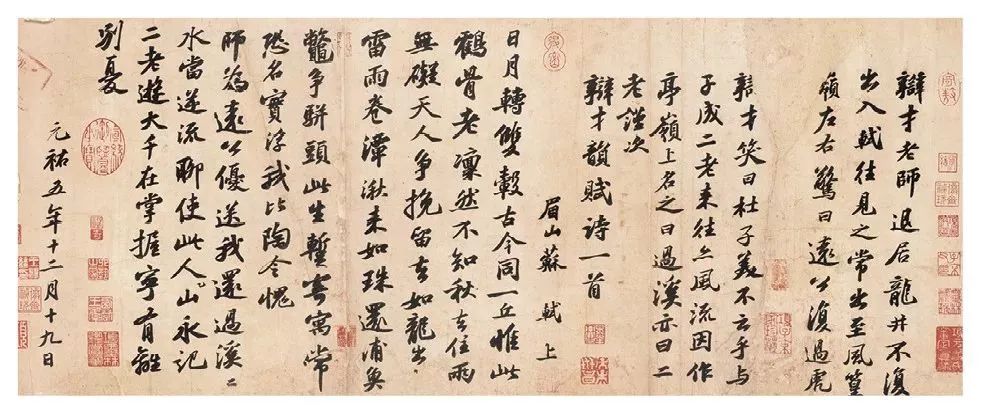 辯才老師退居龍井不復
出入軾往見之常出至風篁
嶺左右驚曰遠公復過虎
辯才笑曰杜子美不云乎與
子成二老来往亦風流因作
亭嶺上名之曰過溪亦曰二
老謹次
辯才韻賦詩一首
眉山蘇軾上
日月轉雙轂古今同一丘惟此
鶴骨老凛然不知秋去住兩
無礙天人争挽留去如龍出
雷雨卷潭湫来如珠還浦魚
鼈争駢頭此生暫寄寓常
恐名實浮我比陶令愧
師為遠公優送我還過溪〻
水當逆流聊使此人山永記
二老遊大千在掌握寧有離
別憂
元祐五年十二月十九日